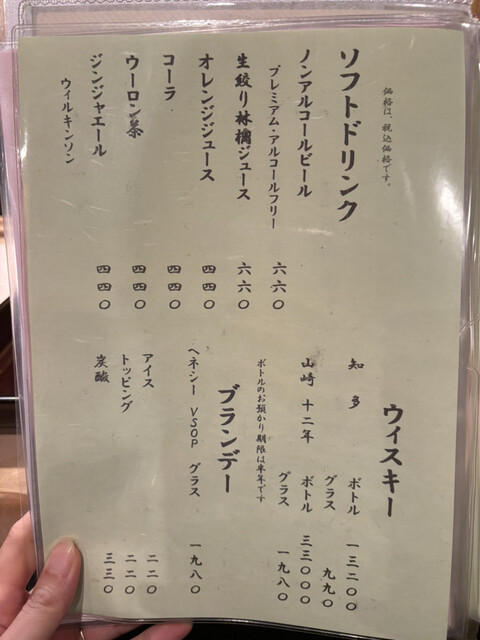 価格は、税込価格です。
ソフトドリンク
ノンアルコールビール
プレミアム・アルコールフリー 六六〇
生絞り林檎ジュース 六六〇
オレンジジュース 四四〇
コーラ 四四〇
ウーロン茶 四四〇
ジンジャエール 四四〇
ウイルキンソン
ウィスキー
知多 ボトル 一三二〇〇
グラス 九九〇
山崎 十二年 ボトル 三三〇〇〇
グラス 一九八〇
ボトルのお預かり期限は半年です
ブランデー
ヘネシー VSOP グラス 一九八〇
アイス 二二〇
トッピング 二二〇
炭酸 三三〇